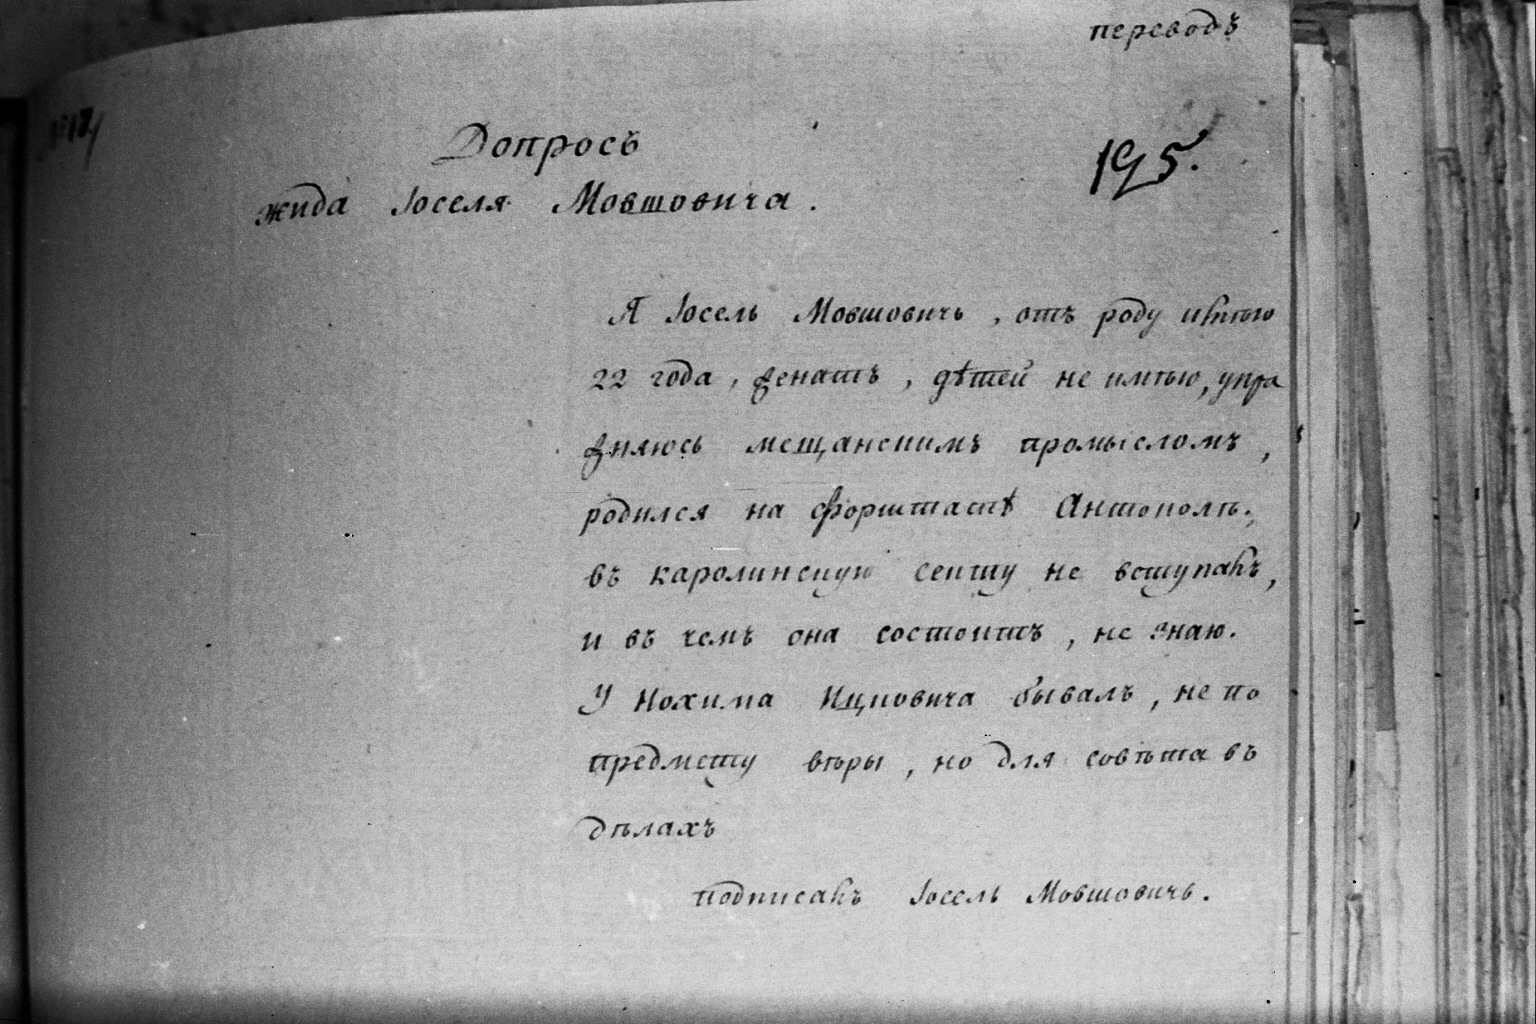 переводъ
№ 17
Допросъ
195.
жида Іоселя Мовшовича.
Я Іосель Мовшовичь, отъ роду имѣю
22 года, женатъ, дѣтей не имѣю, упра
жняюсь мещанскимъ промысломъ,
родился на форштатѣ Антополѣ.
въ каролинскую секту не вступалъ,
и въ чемъ она состоитъ, не знаю.
У Нохима Ицковича бывалъ, не по
предмету вѣры, но для совѣта въ
дѣлахъ
подписалъ Іосель Мовшовичь.